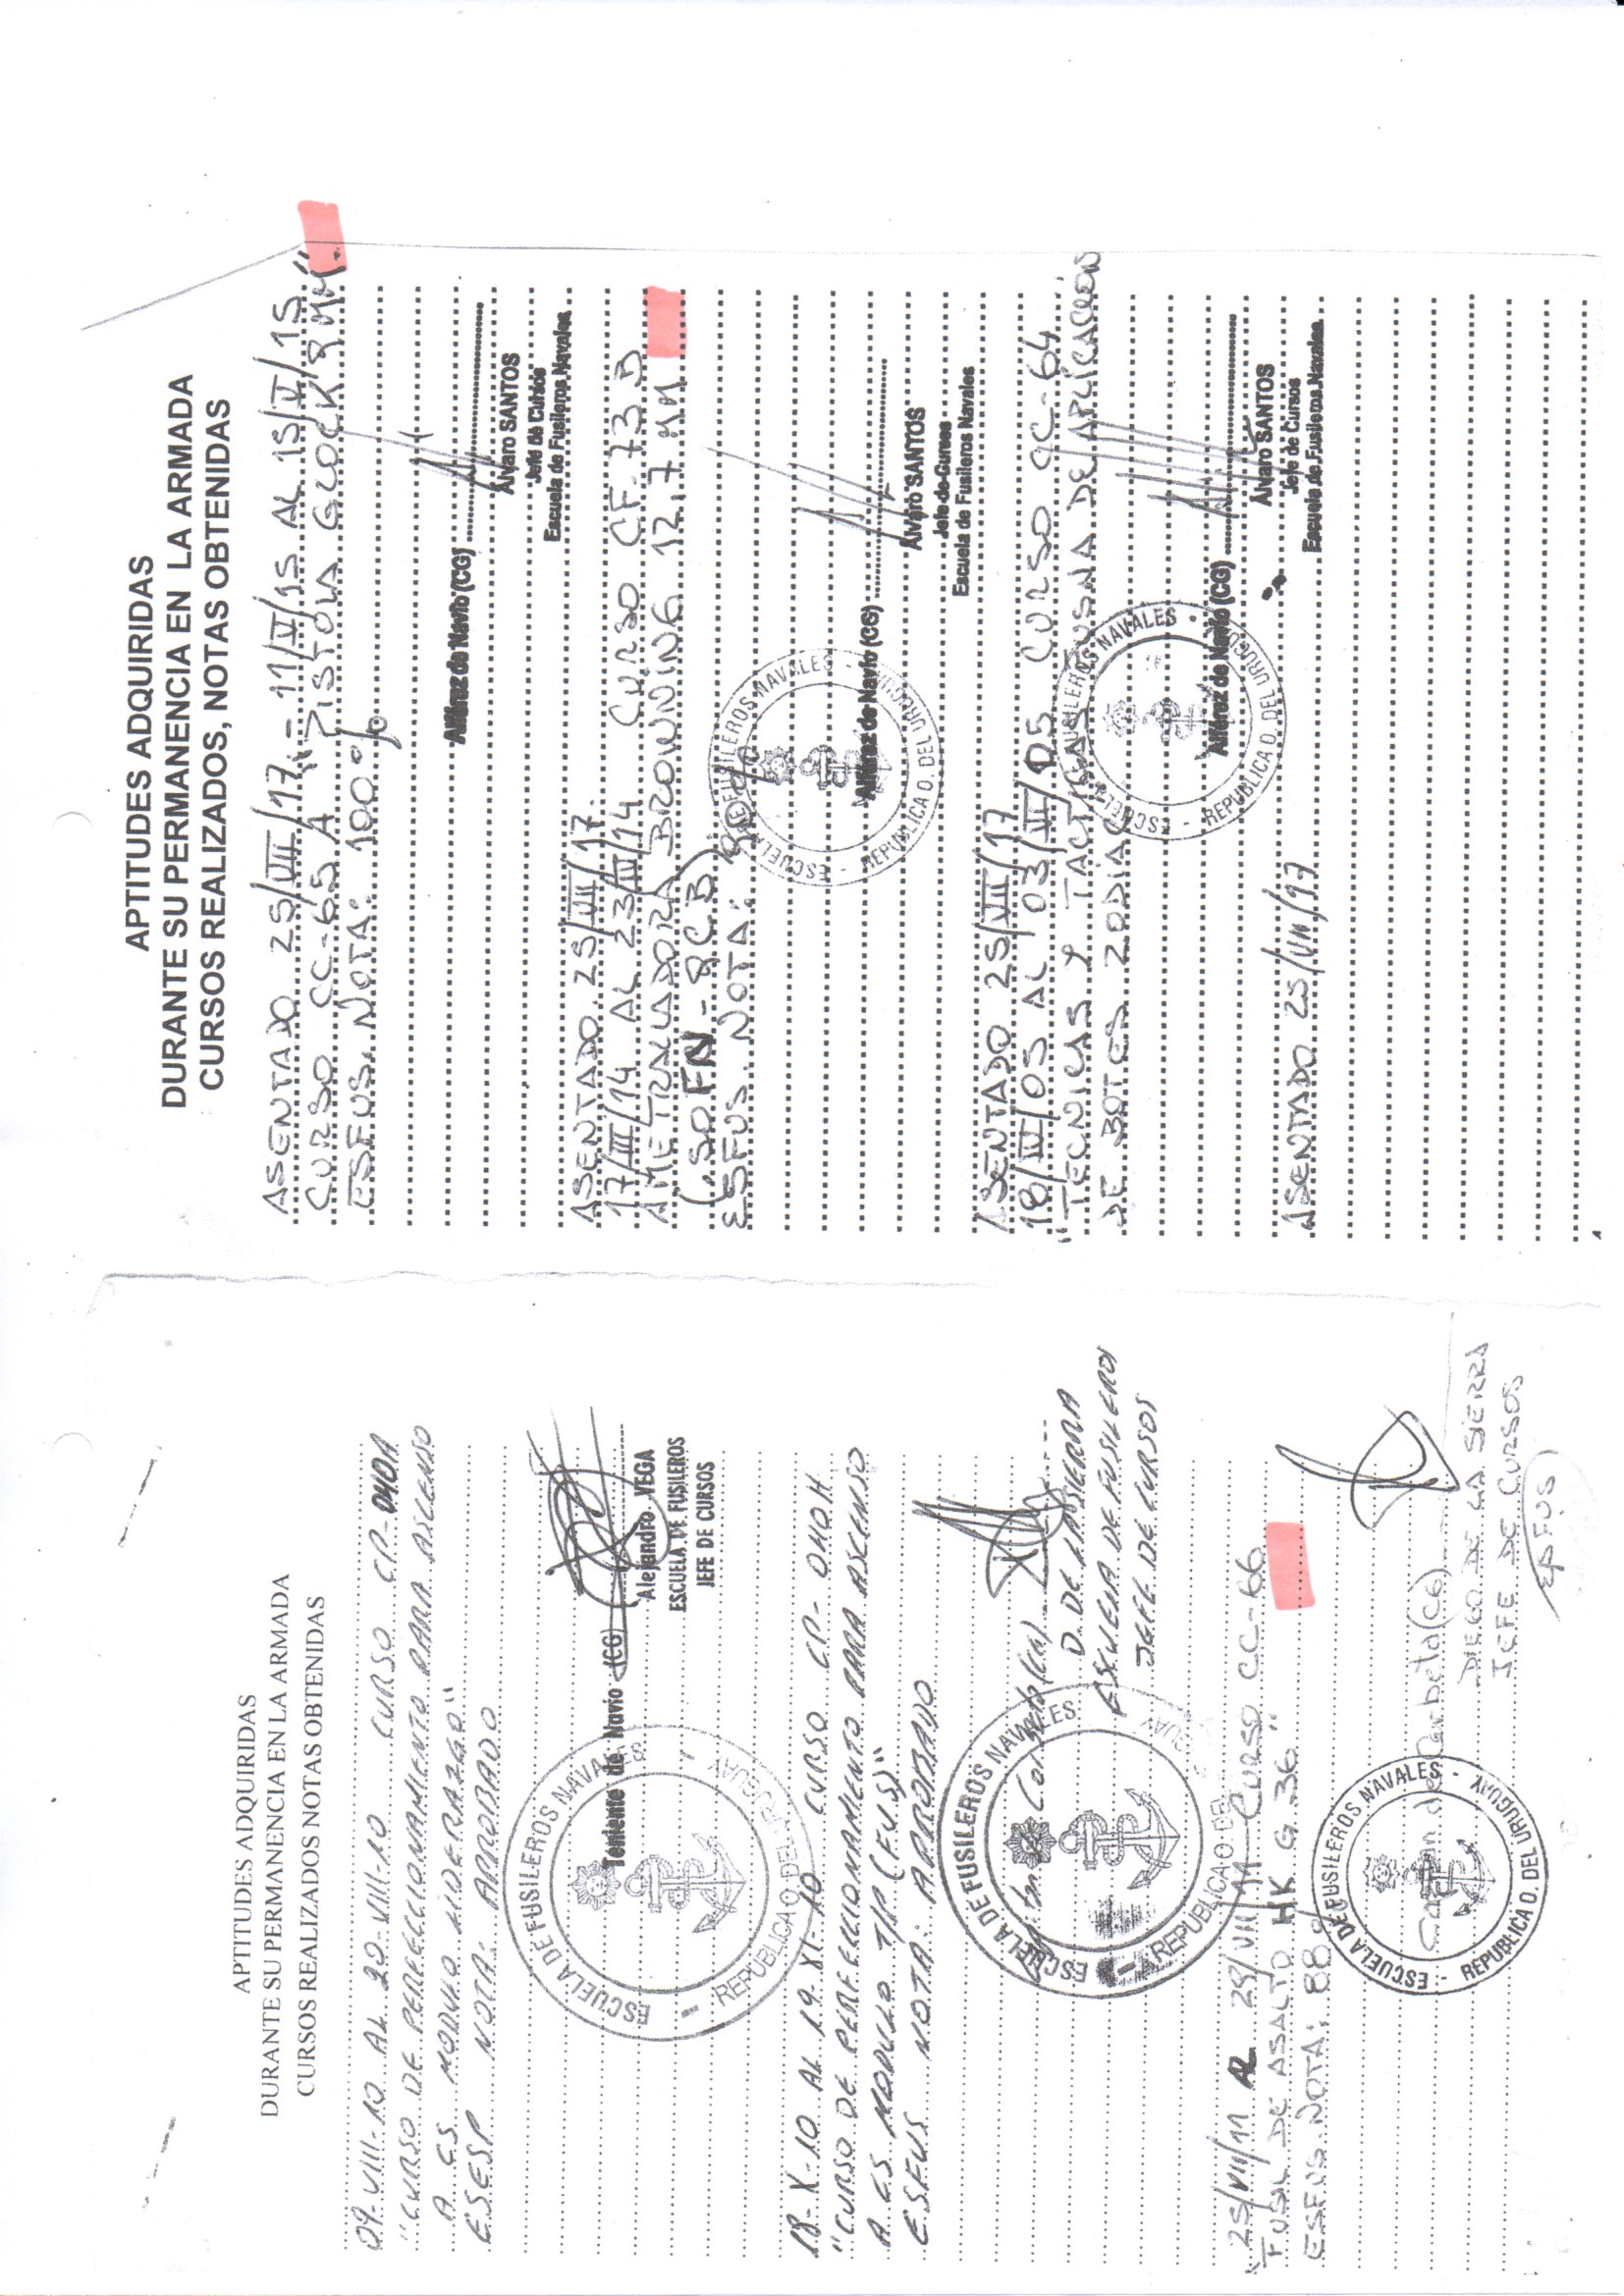 APTITUDES ADQUIRIDAS
DURANTE SU PERMANENCIA EN LA ARMADA
CURSOS REALIZADOS NOTAS OBTENIDAS
09-VIII-10 AL 20-VIII-10 CURSO CP-040A
"CURSO DE PERFECCIONAMIENTO PARA ASCENSO
A CS MODULO LIDERAZGO"
ESESP NOTA: APROBADO
ESCUELA DE FUSILEROS NAVALES
REPUBLICA O. DEL URUGUAY
Teniente de Navío (CG)
Alejandro VEGA
ESCUELA DE FUSILEROS
JEFE DE CURSOS
18-X-10 AL 19-XI-10 CURSO CP-040H
"CURSO DE PERFECCIONAMIENTO PARA ASCENSO
A CS MODULO T/P (FUS)"
ESFUS NOTA: APROBADO
ESCUELA DE FUSILEROS NAVALES
REPUBLICA O. DEL URUGUAY
Capitan de Corbeta (CG)
D. DE LA SIERRA
ESCUELA DE FUSILEROS
JEFE DE CURSOS
25/VII/11 AL 29/VII/11 CURSO CC-66
"FUSIL DE ASALTO HK G 36"
ESFUS NOTA: 88%
ESCUELA DE FUSILEROS NAVALES
REPUBLICA O. DEL URUGUAY
Capitan de Corbeta (CG)
DIEGO DE LA SIERRA
JEFE DE CURSOS
ESFUS
APTITUDES ADQUIRIDAS
DURANTE SU PERMANENCIA EN LA ARMADA
CURSOS REALIZADOS, NOTAS OBTENIDAS
ASENTADO 25/VII/17.- 11/V/15 AL 15/V/15
CURSO CC-65 A "PISTOLA GLOCK 9 MM."
ESFUS. NOTA: 100%
Alférez de Navío (CG)
Alvaro SANTOS
Jefe de Cursos
Escuela de Fusileros Navales
ASENTADO 25/VII/17.
17/III/14 AL 23/IV/14 CURSO CF-73 B
AMETRALLADORA BROWNING 12,7 MM
(.50 FN - QCB)
ESFUS. NOTA: 90%
ESCUELA DE FUSILEROS NAVALES
REPUBLICA O. DEL URUGUAY
Alférez de Navío (CG)
Alvaro SANTOS
Jefe de Cursos
Escuela de Fusileros Navales
ASENTADO 25/VII/17
18/IV/05 AL 03/VI/05 CURSO CC-64
"TECNICAS Y TACTICAS FUSNA DE APLICACCION
DE BOTES ZODIAC
ESCUELA DE FUSILEROS NAVALES
REPUBLICA O. DEL URUGUAY
Alférez de Navío (CG)
Alvaro SANTOS
Jefe de Cursos
Escuela de Fusileros Navales
ASENTADO 25/VII/17